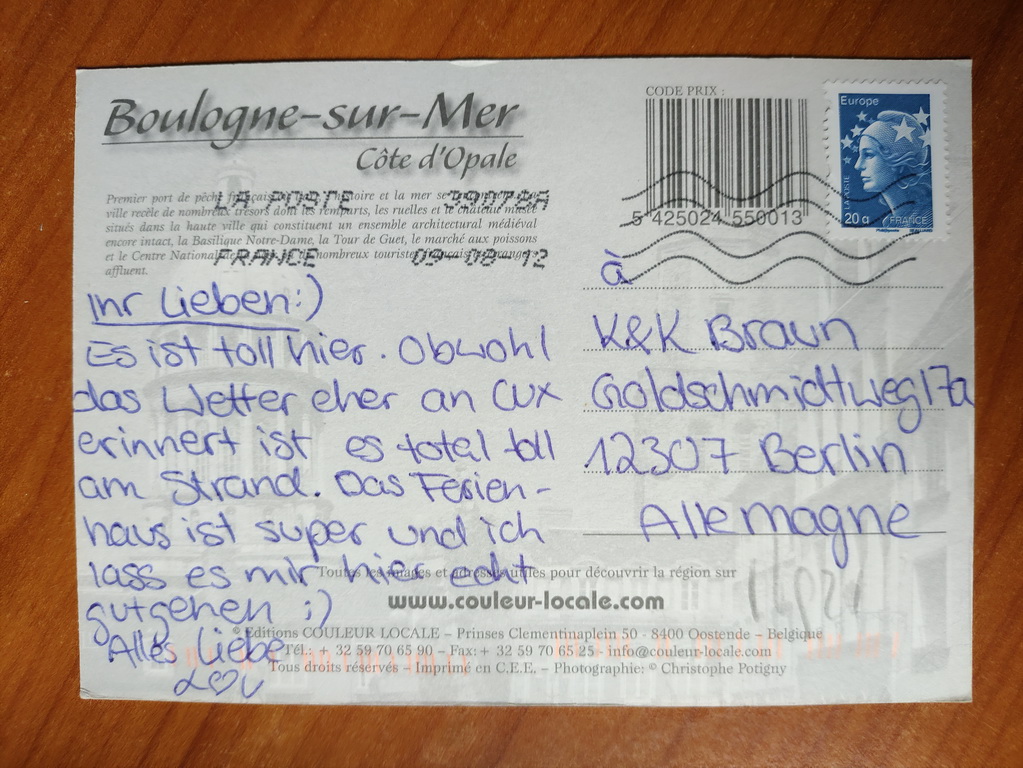 Boulogne-sur-Mer
Côte d'Opale
Premier port de pêche français, l'histoire et la mer se
ville recèle de nombreux trésors dont les remparts, les ruelles et le château musée
situés dans la haute ville qui constituent un ensemble architectural médiéval
encore intact, la Basilique Notre-Dame, la Tour de Guet, le marché aux poissons
et le Centre National de nombreux touristes français étrangers
affluent.
LA POSTE 39078A
FRANCE 09-08-12
CODE PRIX :
5 425024 550013
Europe
LA POSTE
20g FRANCE
Ihr Lieben:)
Es ist toll hier. Obwohl
das Wetter eher an CUX
erinnert ist es total toll
am Strand. Das Ferien-
haus ist super und ich
lass es mir hier echt
gutgehen ;)
Alles Liebe
à
K&K Braun
Goldschmidtweg 17a
12307 Berlin
Allemagne
Toutes les images et adresses utiles pour découvrir la région sur
www.couleur-locale.com
© Editions COULEUR LOCALE – Prinses Clementinaplein 50 - 8400 Oostende – Belgique
Tél.: + 32 59 70 65 90 – Fax: + 32 59 70 65 25 - info@couleur-locale.com
Tous droits réservés – Imprimé en C.E.E. – Photographie: © Christophe Potigny